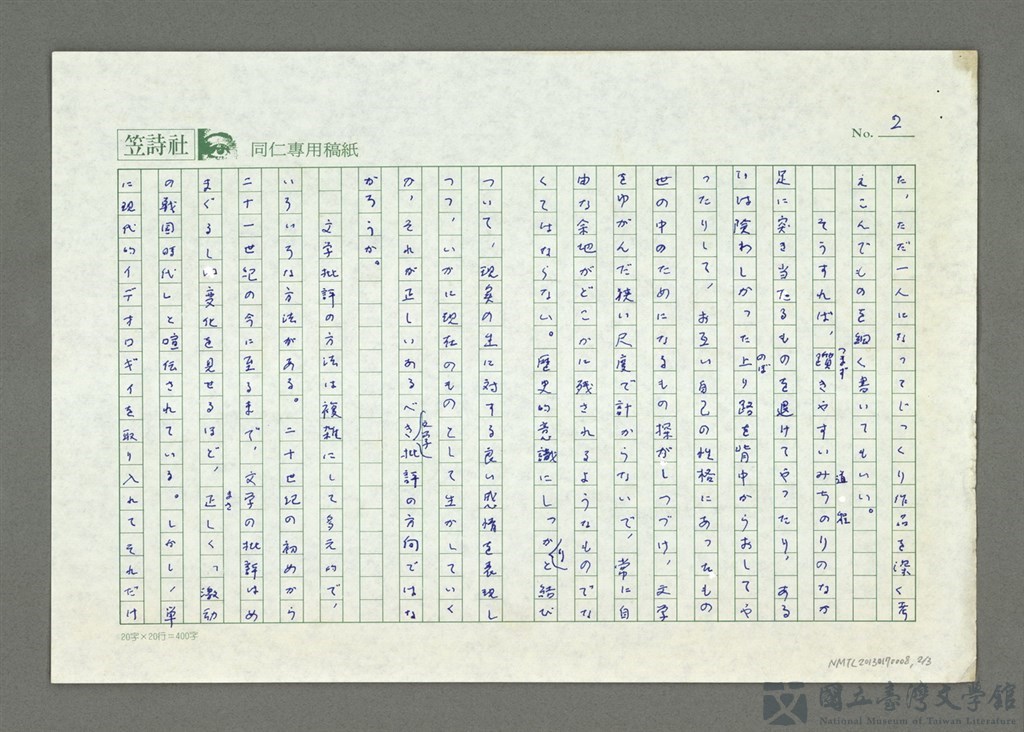 笠詩社
同仁專用稿紙
No. 2
た、ただ一人になってじっくり作品を深く考
えこんでものを細く書いてもいい。
そうすれば、躓きやすいみちのりのなか
つまず
道程
足に突き当たるものを退けてやったり、ある
いは険わしかった上り路を背中からおしてや
のぼ
ったりして、お互い自己の性格にあったもの
世の中のためになるもの探がしつづけ、文学
をゆがんだ狭い尺度で計からないで、常に自
由な余地がどこかに残されるようなものでな
くてはならない。歴史的意識にしっかと結び
り
ついて、現実の生に対する良い感情を表現し
つつ、いかに現在のものとして生かしていく
か、それが正しいあるべき批評の方向ではな
文学
かろうか。
文学批評の方法は複雑にして多元的で、
いろいろな方法がある。二十世紀の初めから
二十一世紀の今に至るまで、文学の批評はめ
まぐるしい変化を見せるほど、正しく「激動
まさ
の戦国時代」と喧伝されている。しかし、単
に現代的イデオロギイを取り入れてそれだけ
20字×20行=400字
NMTL20130170008, 2/3
國立臺灣文學館
National Museum of Taiwan Literature